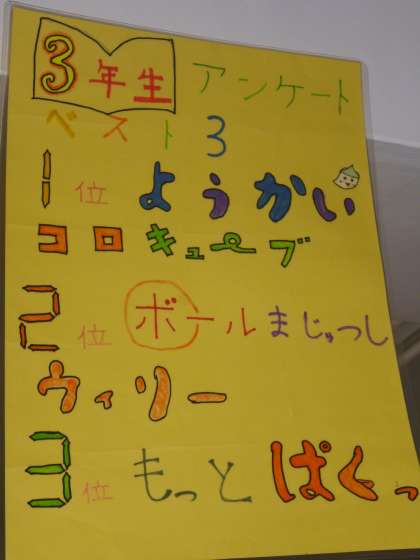 3年生 アンケート
ベスト3
1位 ようかい
コロキューブ
2位 ボールまじゅつし
ウィリー
3位 もっとぱくっ